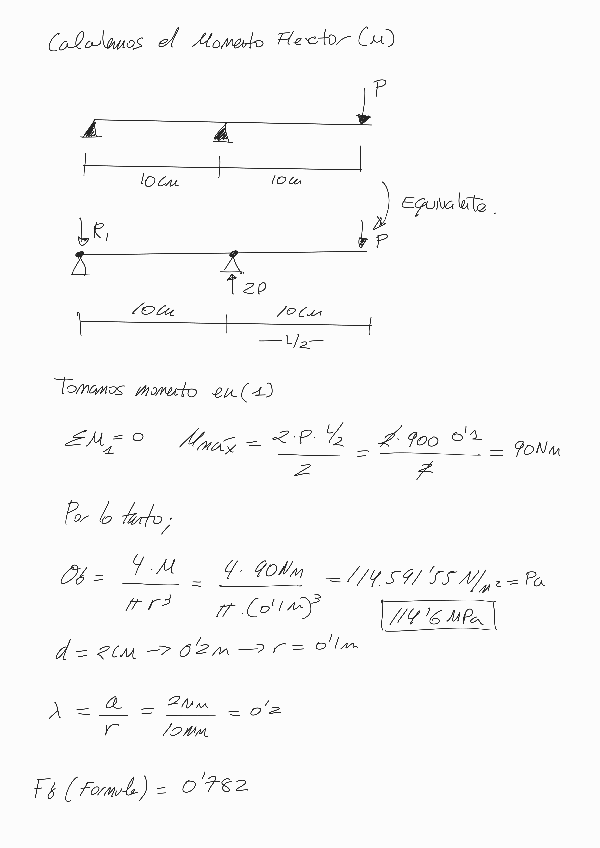 Calculamos el Momento Flector (M)
P
10cm 10cm
Equivalente.
R1 P
2P
10cm 10cm
L/2
Tomamos momento en (1)
ΣM1 = 0 Mmáx = 2·P·L/2 / 2 = 2·900 0'1 / 2 = 90Nm
Por lo tanto;
σb = 4·M / πr³ = 4·90Nm / π·(0'1m)³ = 114.591'55 N/m² = Pa
114'6 MPa
d = 2cm → 0'2m → r = 0'1m
λ = a / r = 2mm / 10mm = 0'2
Fb (Formule) = 0'782